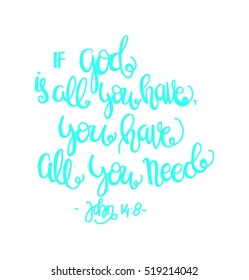 IF God
is all you have,
you have
all you need
- John 14:8-
shutterstock.com · 519214042